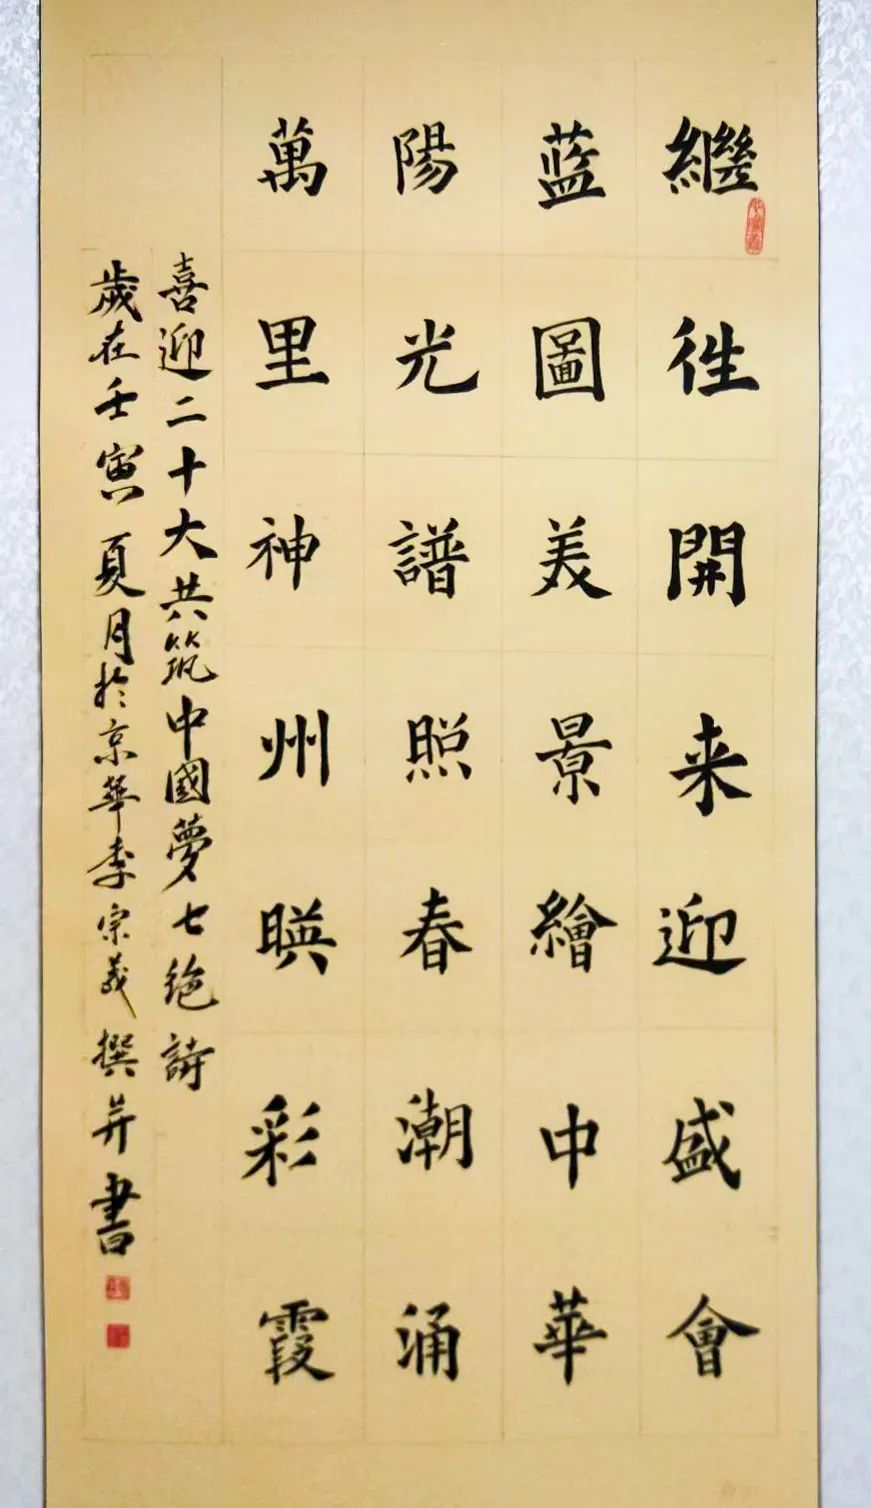 繼徃開来迎盛會
蓝圖美景繪中華
陽光譜照春潮涌
萬里神州暎彩霞
喜迎二十大共筑中國夢七绝詩
歲在壬寅夏月於京華李宗義撰并書